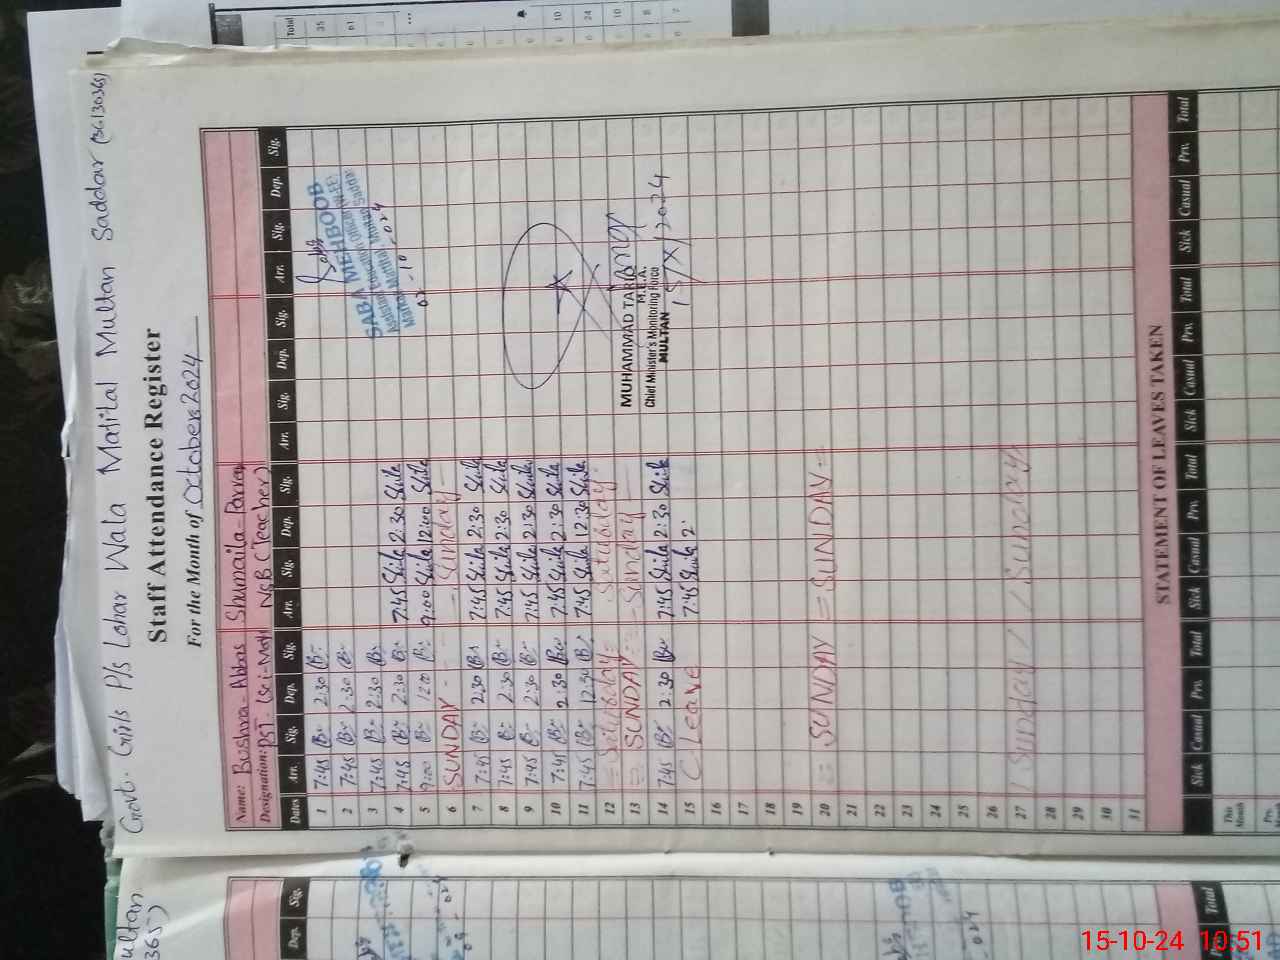 Govt. Girls P/s Lohar Wala Matital Multan Saddar (36130365)
Staff Attendance Register
For the Month of October 2024
Name: Bushra - Abbas Shumaila - Parveen
Designation: PST - (Sci-Math) NSB (Teacher)
Dates Arr. Sig. Dep. Sig. Arr. Sig. Dep. Sig. Arr. Sig. Dep. Sig. Arr. Sig. Dep. Sig.
1 7:45 B 2:30 B
2 7:45 B 2:30 B
3 7:45 B 2:30 B
4 7:45 B 2:30 B 7:45 2:30
5 9:00 B 12:00 B 9:00 12:00
6 SUNDAY - - - Sunday -
7 7:45 B 2:30 B 7:45 2:30
8 7:45 B 2:30 B 7:45 2:30
9 7:45 B 2:30 B 7:45 2:30
10 7:45 B 2:30 B 7:45 2:30
11 7:45 B 12:30 B 7:45 12:30
12 = Saturday = Saturday
13 = SUNDAY = - Sunday -
14 7:45 B 2:30 B 7:45 2:30
15 C-Leave 7:45 2:
16
17
18
19
20 = SUNDAY = SUNDAY =
21
22
23
24
25
26
27 / Sunday / / Sunday
28
29
30
31
SABA MEHBOOB
Assistant Education Officer (W-EE)
Markaz Matital, Multan Saddar
MUHAMMAD TARIQ
M.E.A.
Chief Minister's Monitoring Force
MULTAN
15/X/2024
STATEMENT OF LEAVES TAKEN
Sick Casual Prv. Total Sick Casual Prv. Total Sick Casual Prv. Total Sick Casual Prv. Total
This Month
Total
35
61
10
24
10
8
7
ultan
365)
Dep. Sig.
Total
15-10-24 10:51